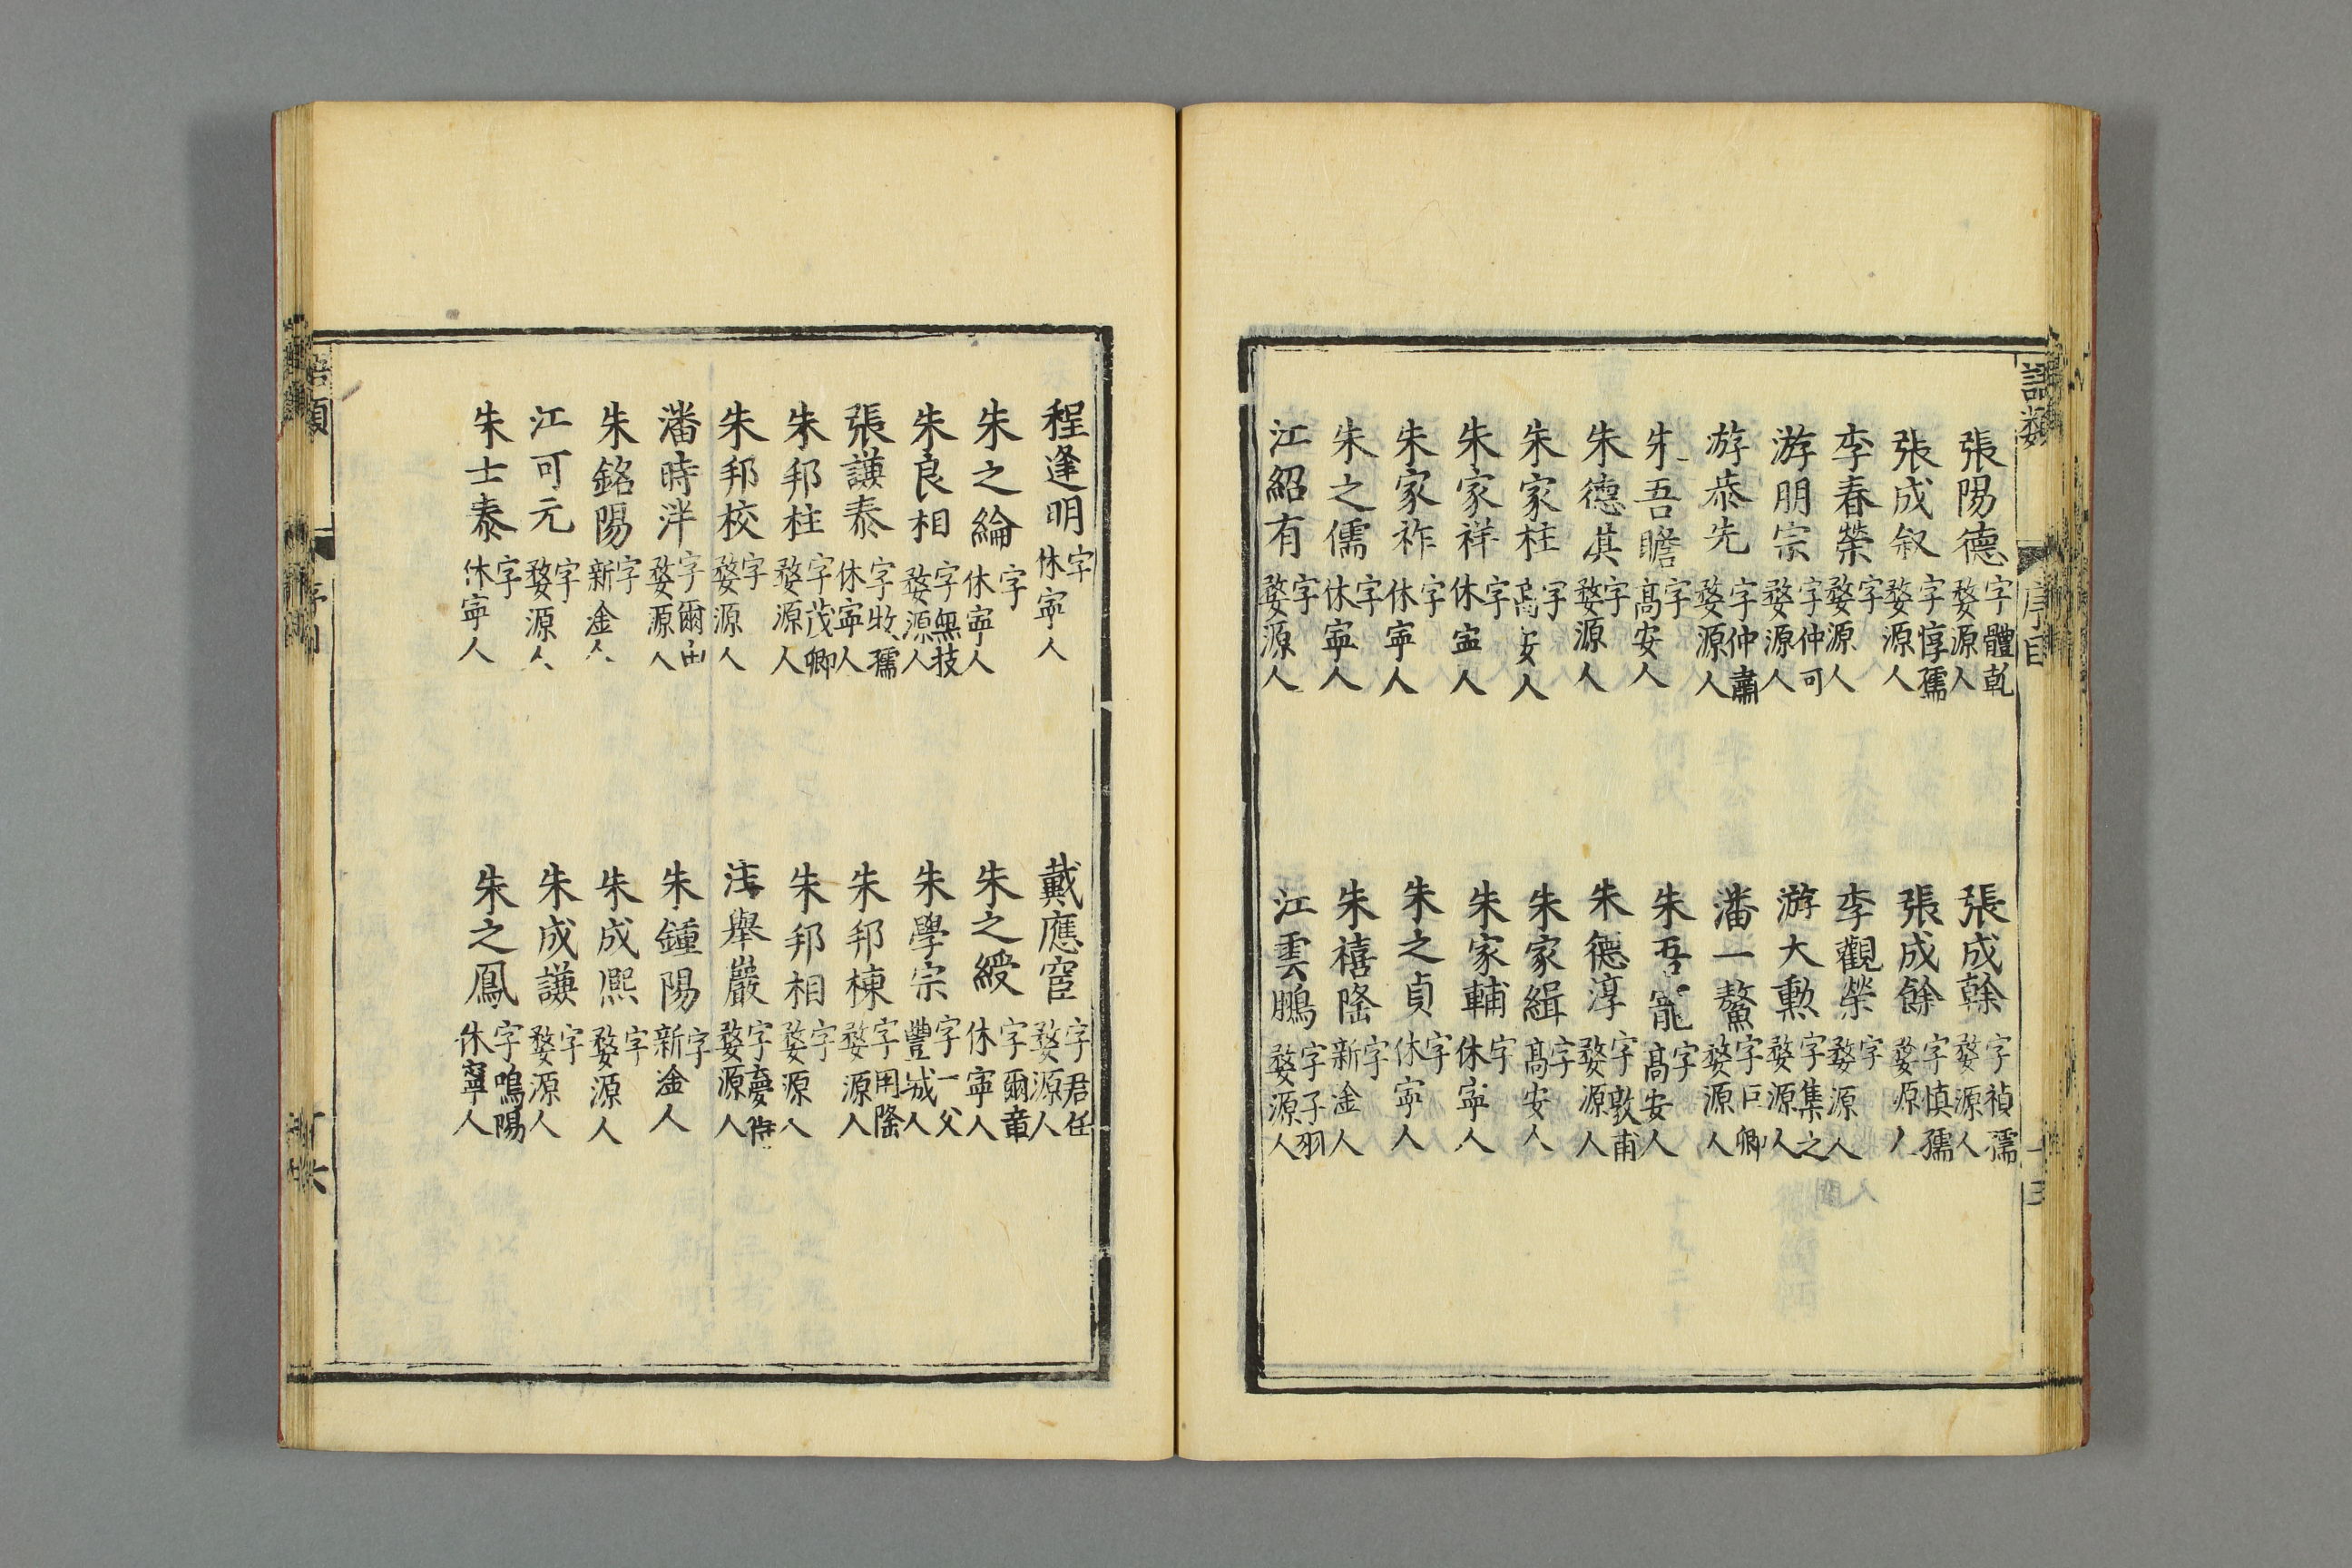 語類 序目
張陽德 字體乾 婺源人 張成榦 字禎孺 婺源人
張成叙 字惇孺 婺源人 張成餘 字慎孺 婺源人
李春榮 字 婺源人 李觀榮 字 婺源人
游朋宗 字仲可 婺源人 游大勲 字集之 婺源人
游恭先 字仲肅 婺源人 潘一鰲 字巨卿 婺源人
朱吾瞻 字 高安人 朱吾寵 字 高安人
朱德淇 字 婺源人 朱德淳 字敦甫 婺源人
朱家柱 字 高安人 朱家緝 字 高安人
朱家祥 字 休寧人 朱家輔 字 休寧人
朱家祚 字 休寧人 朱之貞 字 休寧人
朱之儒 字 休寧人 朱禧隆 字 新淦人
江紹有 字 婺源人 江雲鵬 字子羽 婺源人
程逢明 字 休寧人 戴應宦 字君任 婺源人
朱之綸 字 休寧人 朱之綬 字爾章 休寧人
朱良相 字無技 婺源人 朱學宗 字一父 豐城人
張謙泰 字牧孺 休寧人 朱邦棟 字用隆 婺源人
朱邦柱 字茂卿 婺源人 朱邦相 字 婺源人
朱邦校 字 婺源人 舉巖 字夢 婺源人
潘時泮 字爾 婺源人 朱鍾陽 字 新淦人
朱銘陽 字 新淦人 朱成熙 字 婺源人
江可元 字 婺源人 朱成謙 字 婺源人
朱士泰 字 休寧人 朱之鳳 字鳴陽 休寧人